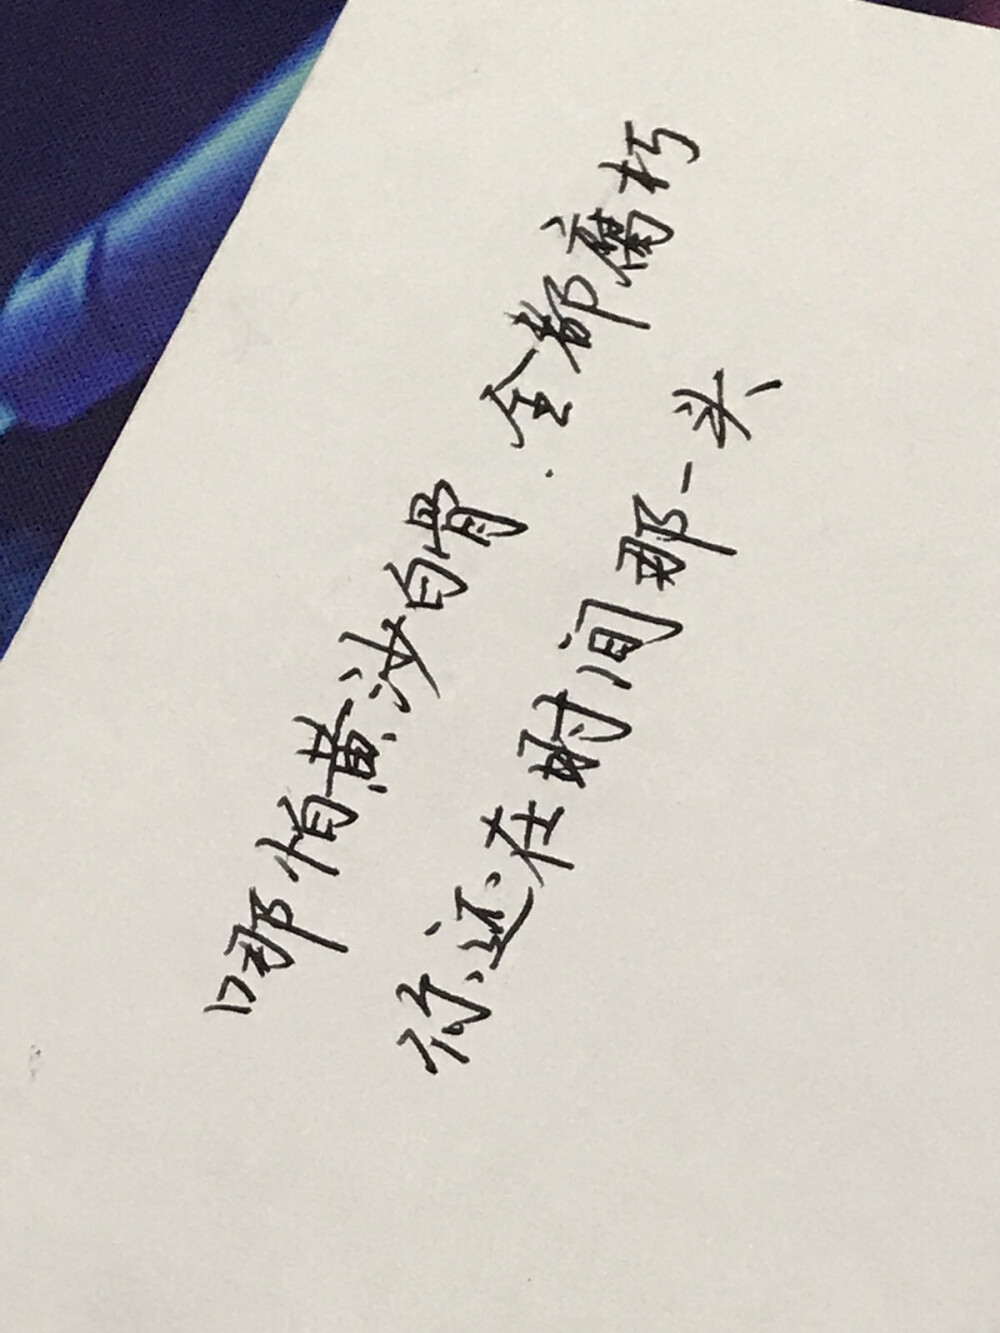 哪怕黄沙白骨.全都腐朽
你还在时间那一头